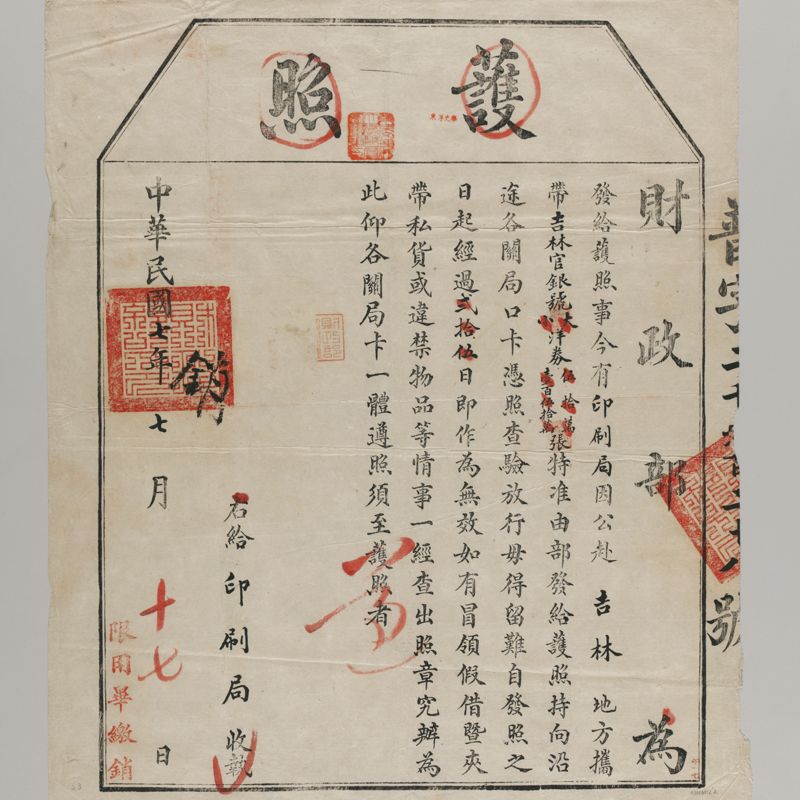 護照
財政部為
發給護照事今有印刷局因公赴吉林地方攜
帶吉林官銀號大洋券伍拾萬張
小 壹百伍拾萬
特准由部發給護照持向沿
途各關局口卡憑照查驗放行毋得留難自發照之
日起經過貳拾伍日即作為無效如有冒領假借暨夾
帶私貨或違禁物品等情事一經查出照章究辦為
此仰各關局卡一體遵照須至護照者
右給印刷局收執
中華民國七年七月十七日
銷
限用畢繳銷
號